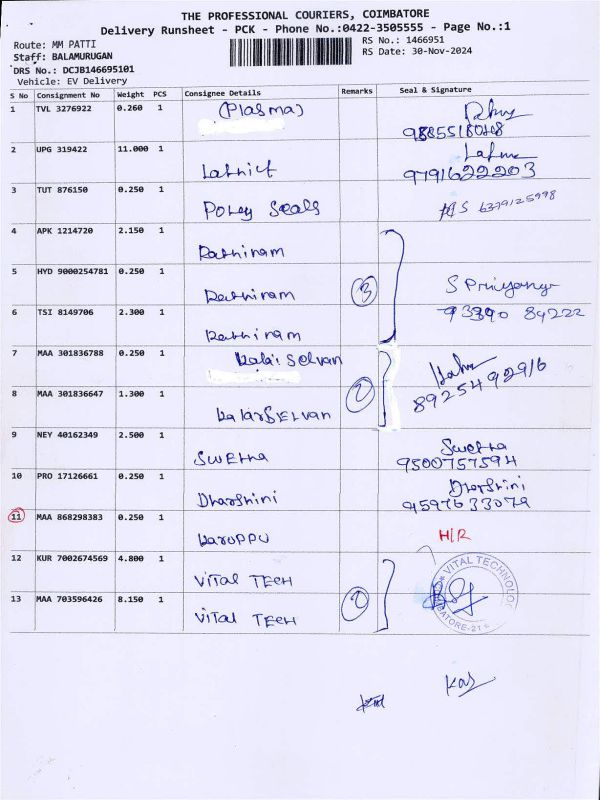 THE PROFESSIONAL COURIERS, COIMBATORE
Delivery Runsheet - PCK - Phone No.:0422-3505555 - Page No.:1
Route: MM PATTI
Staff: BALAMURUGAN
DRS No.: DCJB146695101
Vehicle: EV Delivery
RS No.: 1466951
RS Date: 30-Nov-2024
S No Consignment No Weight PCS Consignee Details Remarks Seal & Signature
1 TVL 3276922 0.260 1 (Plasma)
2 UPG 319422 11.000 1 9791622203
3 TUT 876150 0.250 1 6379125998
4 APK 1214720 2.150 1 Rathiram
5 HYD 9000254781 0.250 1 Rathiram 3 S Priyanga
6 TSI 8149706 2.300 1 Rathiram 84222
7 MAA 301836788 0.250 1 Kalai Selvan
8 MAA 301836647 1.300 1 KalaiSELvan 2 8925492916
9 NEY 40162349 2.500 1 SWEtha Swetha
9500757594
10 PRO 17126661 0.250 1 Dharshini Dharshini
9597633079
11 MAA 868298383 0.250 1 KaroPPU H/R
12 KUR 7002674569 4.800 1 VITal TECH
13 MAA 703596426 8.150 1 VITal TECH 2
VITAL TECHNOLOG